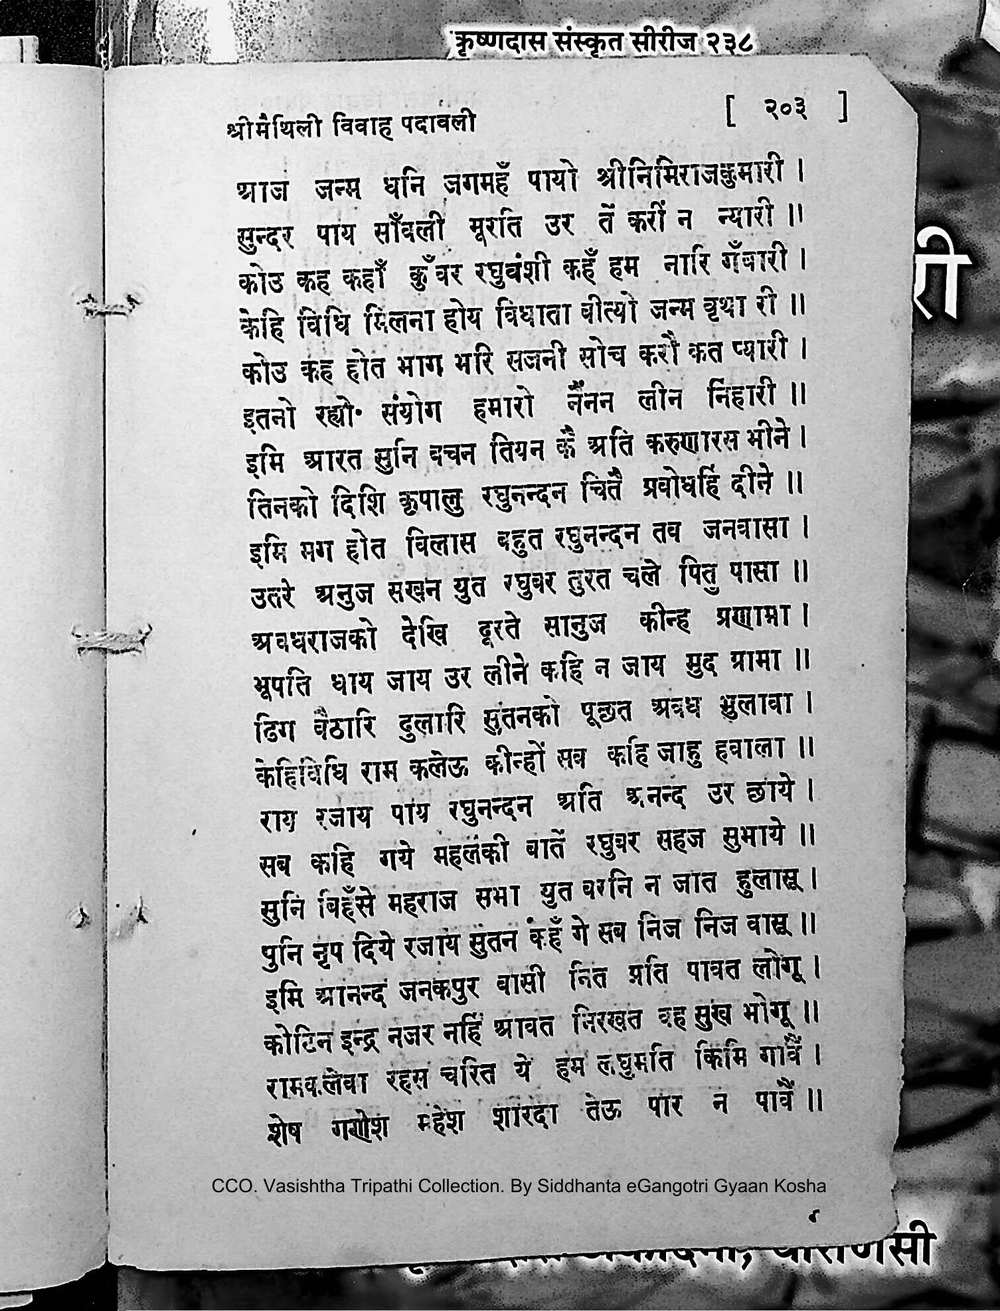 कृष्णदास संस्कृत सीरीज २३८
श्रीमैथिली विवाह पदावली [ २०३ ]
आज जन्म धनि जगमहँ पायो श्रीनिमिराजकुमारी ।
सुन्दर पाय साँवली मूरति उर तें करीं न न्यारी ॥
कोउ कह कहाँ कुँवर रघुबंशी कहँ हम नारि गँवारी ।
केहि विधि मिलना होय विधाता बीत्यो जन्म वृथा री ॥
कोउ कह होत भाग भरि सजनी सोच करौ कत प्यारी ।
इतनो रह्यो संयोग हमारो नैंनन लीन निहारी ॥
इमि आरत सुनि बचन तियन कै अति करुणारस भीने ।
तिनको दिशि कृपालु रघुनन्दन चितै प्रवोधहिं दीने ॥
इमि मग होत विलास बहुत रघुनन्दन तब जनवासा ।
उतरे अनुज सखन युत रघुबर तुरत चले पितु पासा ॥
अवधराजको देखि दूरते सानुज कीन्ह प्रणामा ।
भूपति धाय जाय उर लीने कहि न जाय मुद ग्रामा ॥
ढिग बैठारि दुलारि सुतनको पूछत अवध भुलावा ।
केहिविधि राम कलेऊ कीन्हों सब कहि जाहु हवाला ॥
राय रजाय पाय रघुनन्दन अति अनन्द उर छाये ।
सब कहि गये महलकी बातें रघुबर सहज सुभाये ॥
सुनि बिहँसे महराज सभा युत बरनि न जात हुलासू ।
पुनि नृप दिये रजाय सुतन कहँ गे सब निज निज वासू ॥
इमि आनन्द जनकपुर बासी नित प्रति पावत लोगू ।
कोटिन इन्द्र नजर नहिं आवत निरखत वह सुख भोगू ॥
रामकलेवा रहस चरित ये हम लघुमति किमि गावैं ।
शेष गणेश महेश शारदा तेऊ पार न पावैं ॥
CCO. Vasishtha Tripathi Collection. By Siddhanta eGangotri Gyaan Kosha